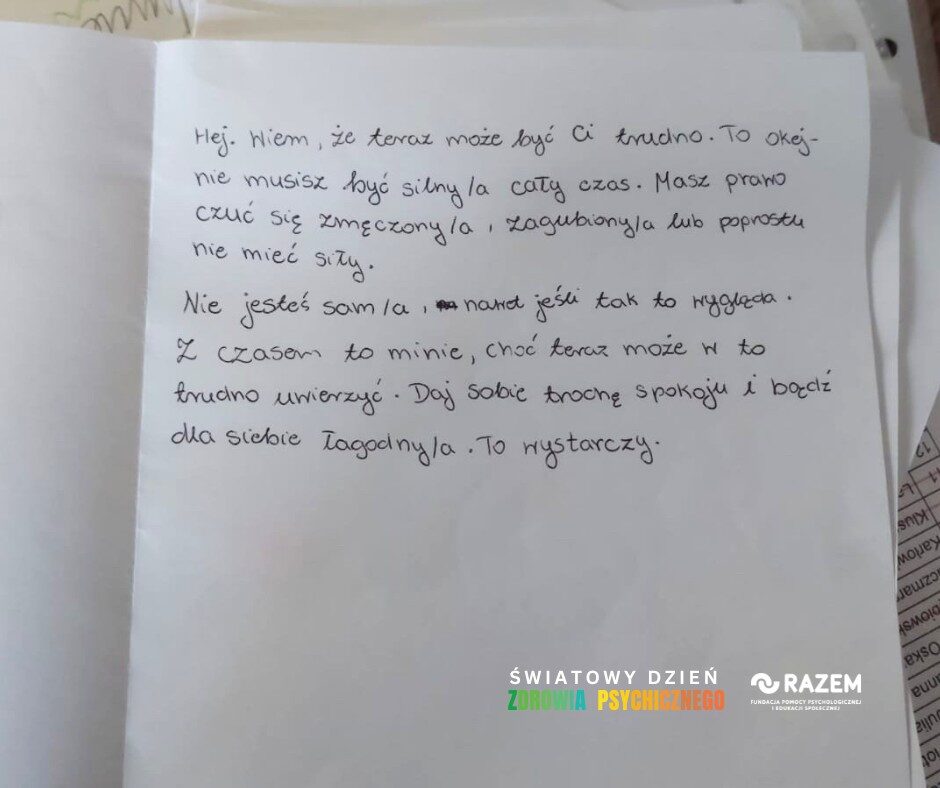 Hej. Wiem, że teraz może być Ci trudno. To okej-
nie musisz być silny/a cały czas. Masz prawo
czuć się zmęczony/a, zagubiony/a lub poprostu
nie mieć siły.
Nie jesteś sam/a, nawet jeśli tak to wygląda.
Z czasem to minie, choć teraz może w to
trudno uwierzyć. Daj sobie trochę spokoju i bądź
dla siebie łagodny/a. To wystarczy.
ŚWIATOWY DZIEŃ
ZDROWIA PSYCHICZNEGO
RAZEM
FUNDACJA POMOCY PSYCHOLOGICZNEJ
I EDUKACJI SPOŁECZNEJ
12
11